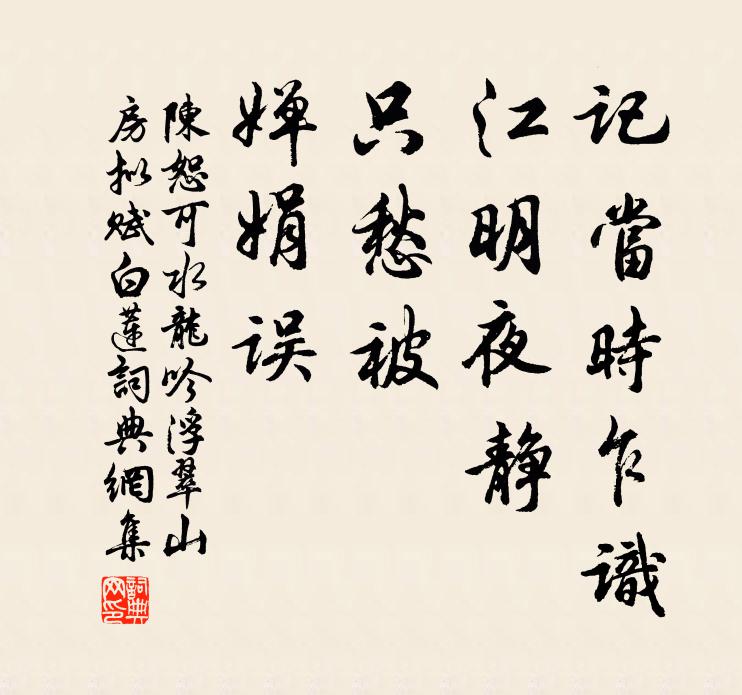 記當時乍識
江明夜静
只愁被
婵娟误
陳恕可水龍吟浮翠山
房拟赋白蓮詞典網集
詞典
网印